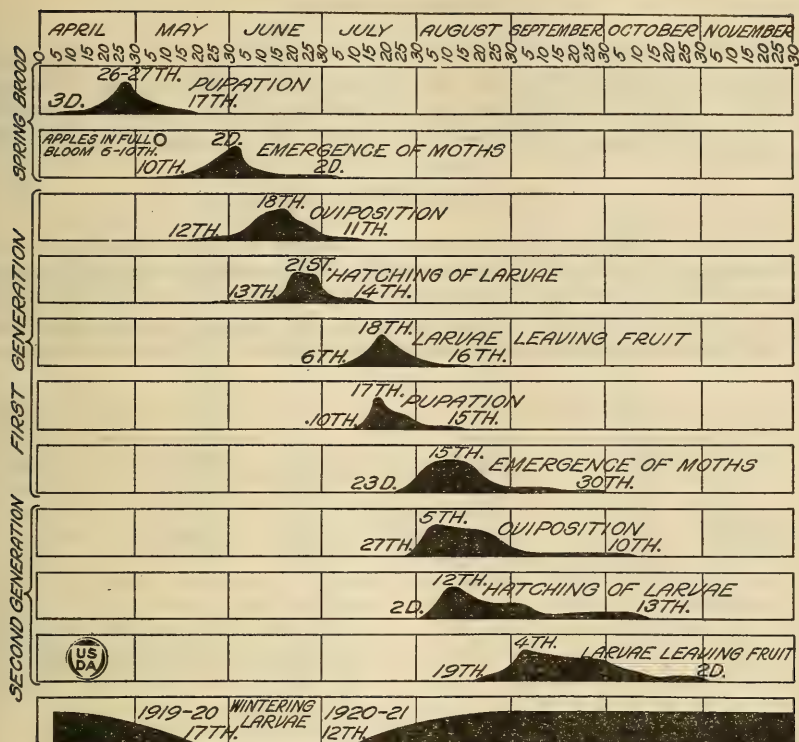 APRIL MAY JUNE JULY AUGUST SEPTEMBER OCTOBER NOVEMBER
0 5 10 15 20 25 30 5 10 15 20 25 30 5 10 15 20 25 30 5 10 15 20 25 30 5 10 15 20 25 30 5 10 15 20 25 30 5 10 15 20 25 30 5 10 15 20 25 30
SPRING BROOD
26-27TH. PUPATION
3D. 17TH.
APPLES IN FULL
BLOOM 6-10TH.
2D. EMERGENCE OF MOTHS
10TH. 2D.
FIRST GENERATION
18TH. OVIPOSITION
12TH. 11TH.
21ST. HATCHING OF LARVAE
13TH. 14TH.
18TH. LARVAE LEAVING FRUIT
6TH. 16TH.
17TH. PUPATION
10TH. 15TH.
15TH. EMERGENCE OF MOTHS
23D. 30TH.
SECOND GENERATION
5TH. OVIPOSITION
27TH. 10TH.
12TH. HATCHING OF LARVAE
2D. 13TH.
US
DA
4TH. LARVAE LEAVING FRUIT
19TH. 2D.
1919-20 WINTERING 1920-21
17TH. LARVAE 12TH.